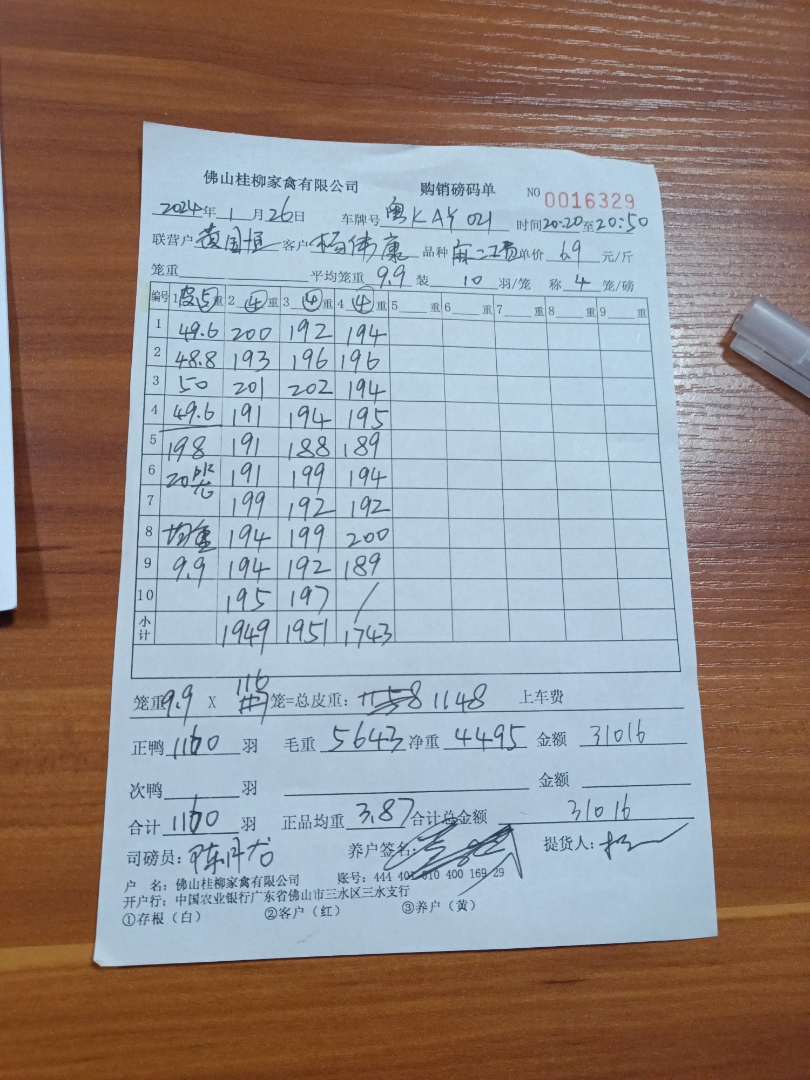 佛山桂柳家禽有限公司 购销磅码单 NO 0016329
2024年 1月26日 车牌号 粤KAY021 时间20:20至20:50
联营户 黄国恒 客户 杨伟廉 品种 单价 6.9 元/斤
笼重 平均笼重 9.9 装 10 羽/笼 称 4 笼/磅
编号 1 皮⑤ 重 2 ④ 重 3 ④ 重 4 ④ 重 5 重 6 重 7 重 8 重 9 重
1 49.6 200 192 194
2 48.8 193 196 196
3 50 201 202 194
4 49.6 191 194 195
5 198 191 188 189
6 20 191 199 194
7 199 192 192
8 均重 194 199 200
9 9.9 194 192 189
10 195 197 /
小计 1949 1951 1743
笼重9.9 X 116 笼=总皮重: 1148 上车费
正鸭 1160 羽 毛重 5643 净重 4495 金额 31016
次鸭 羽 金额
合计 1160 羽 正品均重 3.87 合计总金额 31016
司磅员: 养户签名: 提货人:
户 名: 佛山桂柳家禽有限公司 账号: 444 401 010 400 169 29
开户行: 中国农业银行广东省佛山市三水区三水支行
①存根(白) ②客户(红) ③养户(黄)